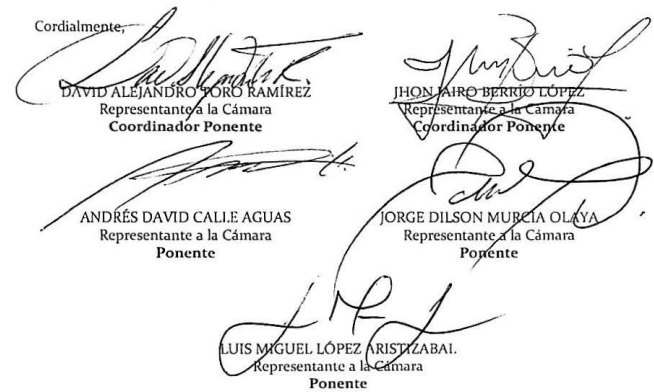 Cordialmente,
DAVID ALEJANDRO TORO RAMÍREZ
Representante a la Cámara
Coordinador Ponente
JHON JAIRO BERRÍO LÓPEZ
Representante a la Cámara
Coordinador Ponente
ANDRÉS DAVID CALLE AGUAS
Representante a la Cámara
Ponente
JORGE DILSON MURCIA OLAYA
Representante a la Cámara
Ponente
LUIS MIGUEL LÓPEZ ARISTIZABAL
Representante a la Cámara
Ponente